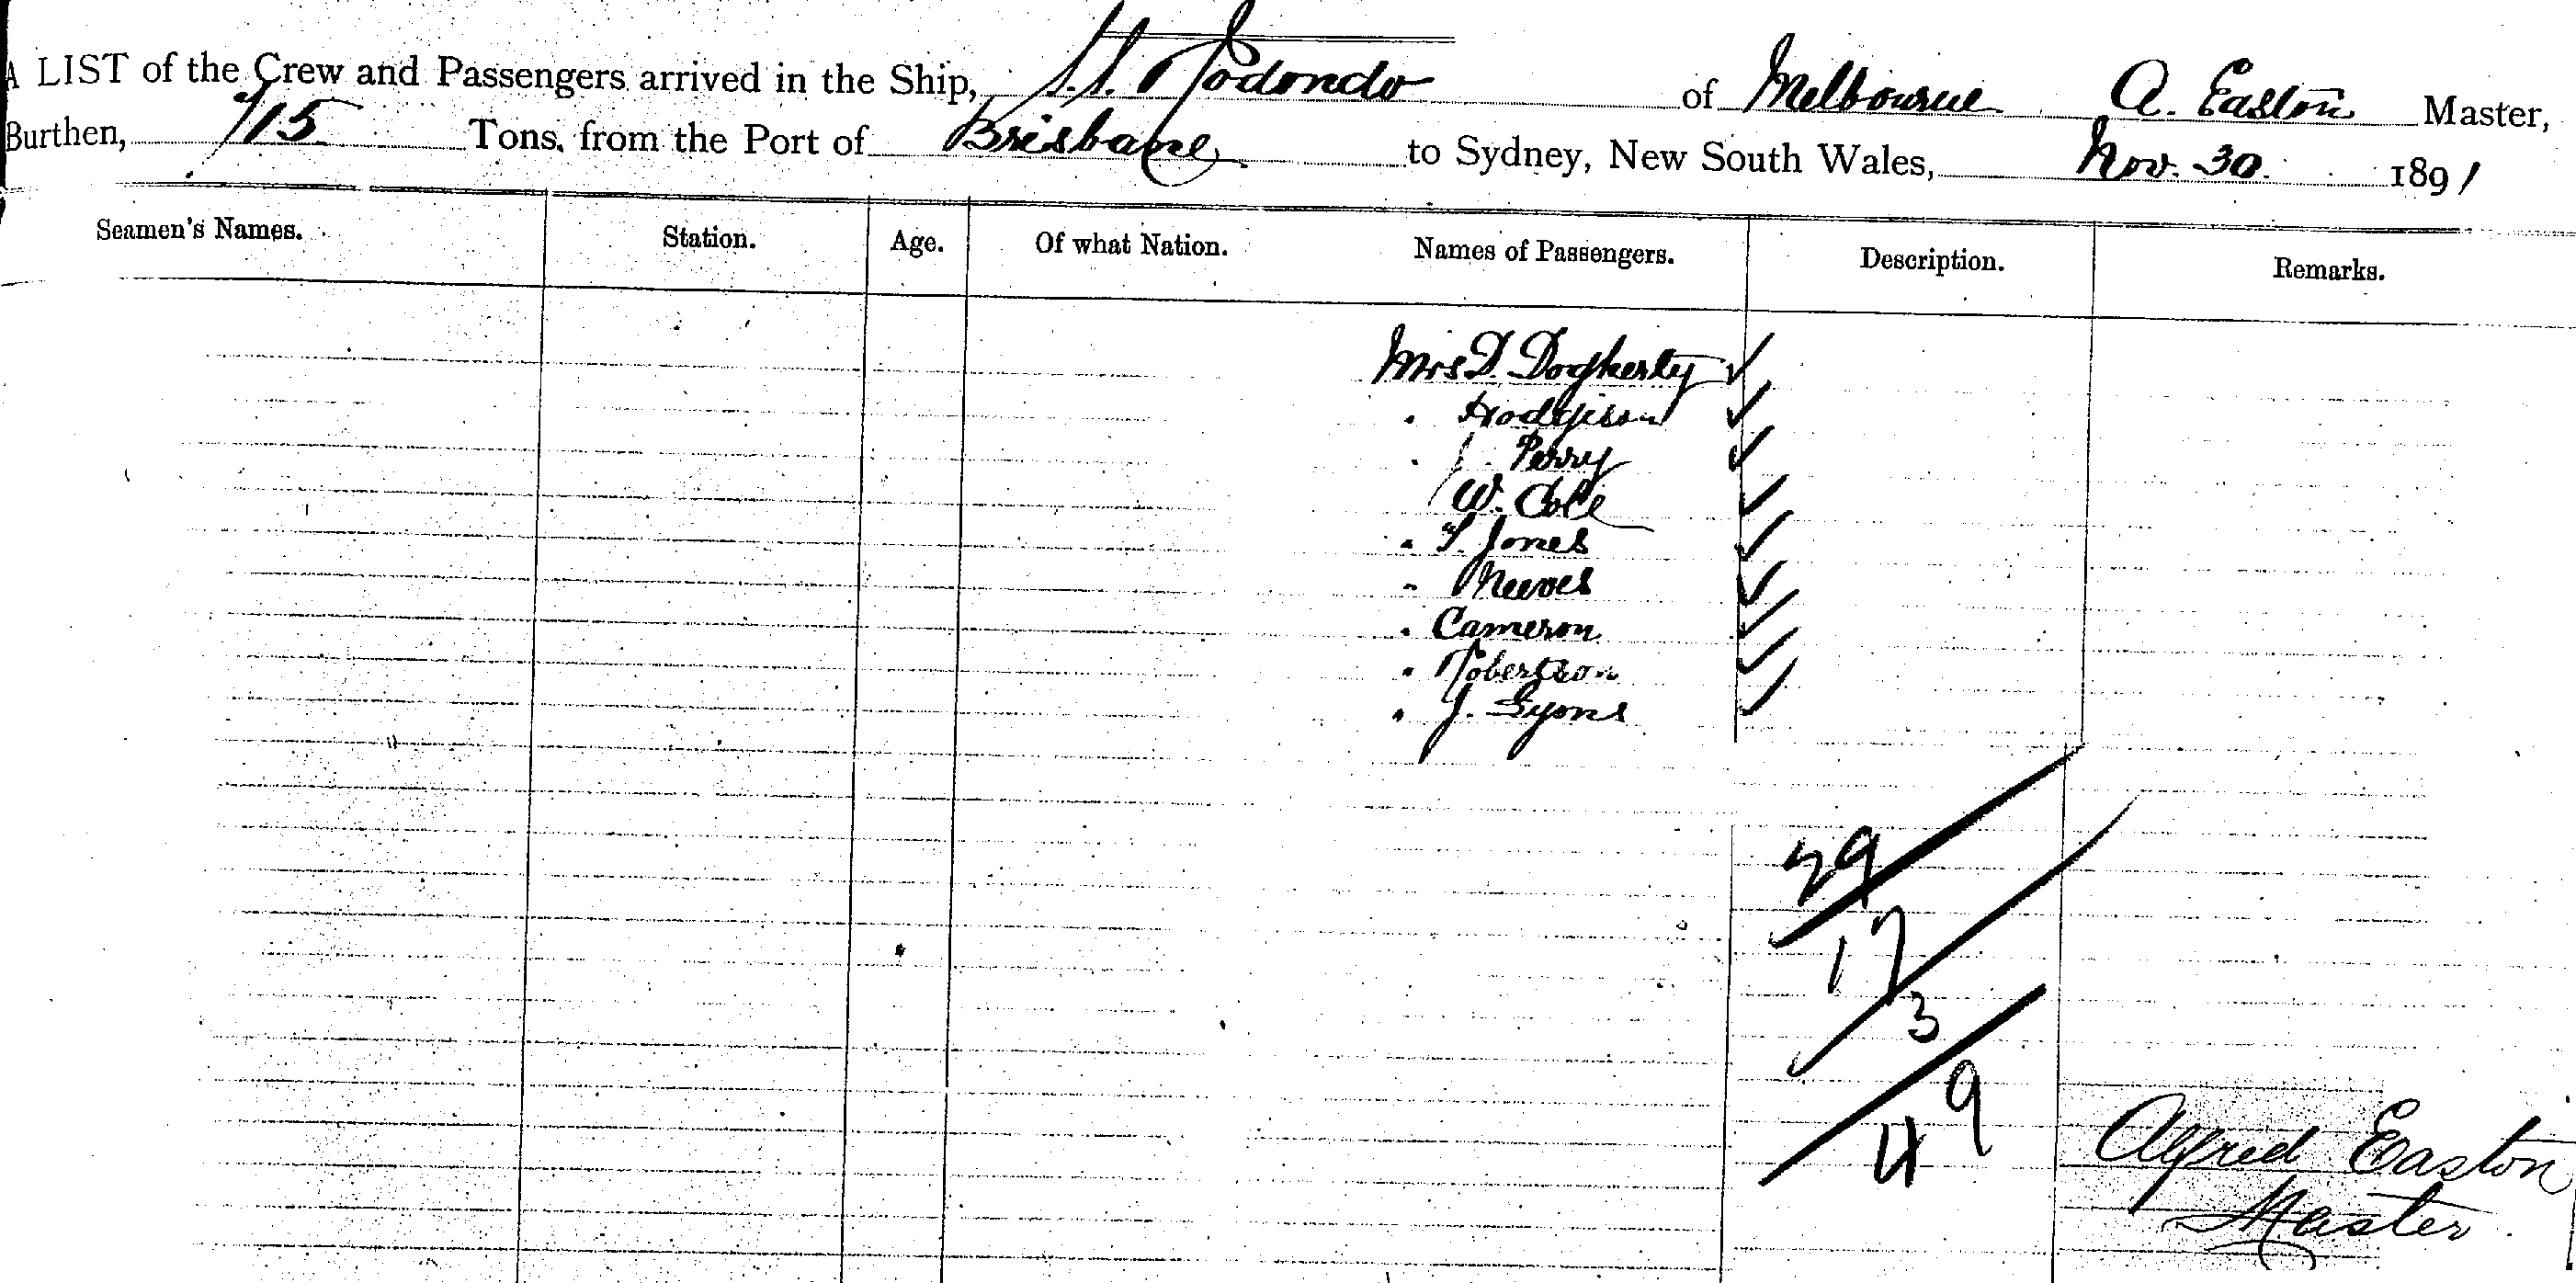 A LIST of the Crew and Passengers arrived in the Ship, S.S. Rodondo of Melbourne A. Easton Master,
Burthen, 715 Tons, from the Port of Brisbane to Sydney, New South Wales, Nov. 30 1891
Seamen's Names. Station. Age. Of what Nation. Names of Passengers. Description. Remarks.
Mrs D. Dogherty ✓
" Hodgison ✓
" J. Perry ✓
W. Cole ✓
" T. Jones ✓
" Reeves ✓
" Cameron ✓
" Robertson ✓
" J. Lyons ✓
29
17
3
49
Alfred Easton
Master